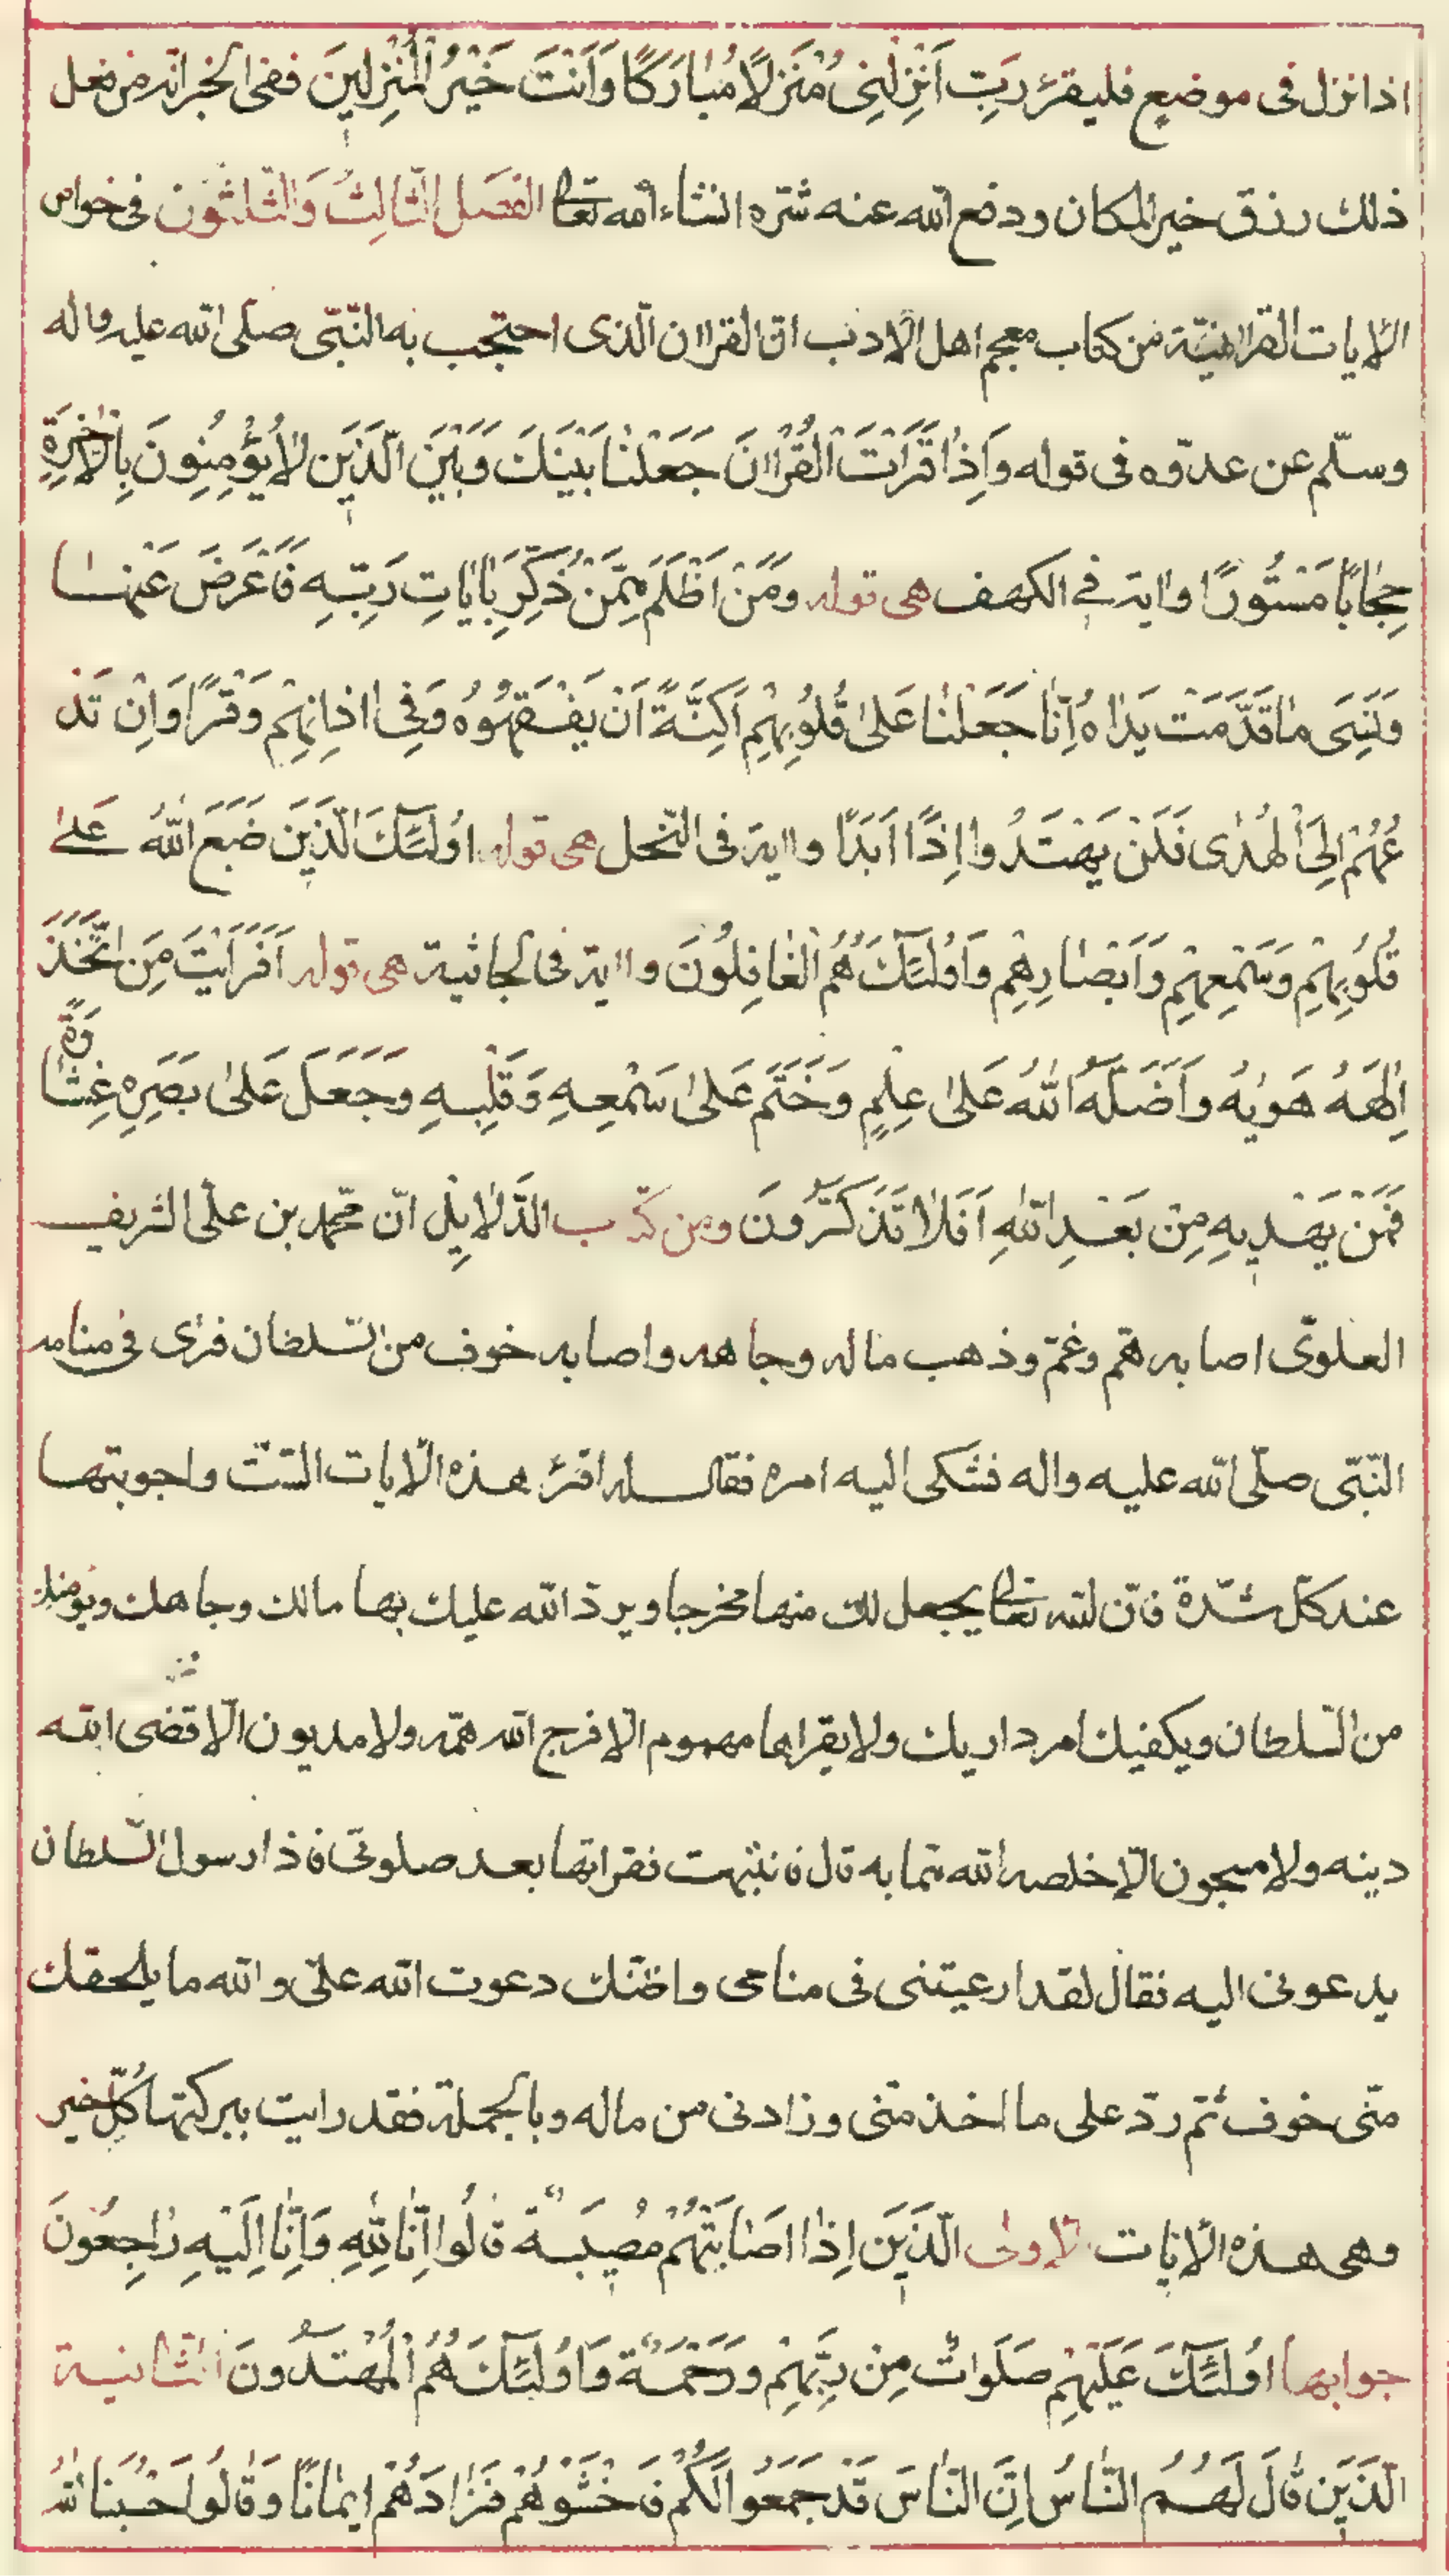 اذا نزل فى موضع فليقرء رَبِّ اَنْزِلْنِى مُنْزَلًا مُبٰارَكًا وَاَنْتَ خَيْرُ الْمُنْزِلِينَ ففى الخبر انه من فعل
ذلك رزق خير المكان ودفع الله عنه شره انشاء الله تعالى الفصل الثالث والثلثون فى خواص
الايات القرانية من كتاب معجم اهل الادب ان القران الذى احتجب به النبى صلى الله عليه واله
وسلم عن عدوه فى قوله وَاِذٰا قَرَاْتَ الْقُرْاٰنَ جَعَلْنٰا بَيْنَكَ وَبَيْنَ الَّذِينَ لٰا يُؤْمِنُونَ بِالْاٰخِرَةِ
حِجٰابًا مَسْتُورًا واية فى الكهف هى قوله وَمَنْ اَظْلَمُ مِمَّنْ ذُكِّرَ بِاٰيٰاتِ رَبِّهِ فَاَعْرَضَ عَنْهٰا
وَنَسِىَ مٰا قَدَّمَتْ يَدٰاهُ اِنّٰا جَعَلْنٰا عَلىٰ قُلُوبِهِمْ اَكِنَّةً اَنْ يَفْقَهُوهُ وَفِى اٰذٰانِهِمْ وَقْرًا وَاِنْ تَدْ
عُهُمْ اِلَى الْهُدٰى فَلَنْ يَهْتَدُوا اِذًا اَبَدًا واية فى النحل هى قوله اُولٰئِكَ الَّذِينَ طَبَعَ اللّٰهُ عَلىٰ
قُلُوبِهِمْ وَسَمْعِهِمْ وَاَبْصٰارِهِمْ وَاُولٰئِكَ هُمُ الْغٰافِلُونَ واية فى الجاثية هى قوله اَفَرَاَيْتَ مَنِ اتَّخَذَ
اِلٰهَهُ هَوٰيهُ وَاَضَلَّهُ اللّٰهُ عَلىٰ عِلْمٍ وَخَتَمَ عَلىٰ سَمْعِهِ وَقَلْبِهِ وَجَعَلَ عَلىٰ بَصَرِهِ غِشٰاوَةً
فَمَنْ يَهْدِيهِ مِنْ بَعْدِ اللّٰهِ اَفَلٰا تَذَكَّرُونَ ومن كتاب الدلايل ان محمد بن على الشريف
العلوى اصابه هم وغم وذهب ماله وجاهه واصابه خوف من السلطان فراى فى منامه
النبى صلى الله عليه واله فشكى اليه امره فقال له اقرء هذه الايات الست واجوبتها
عند كل شدة فان الله تعالى يجعل لك منها مخرجا ويرد الله عليك بها مالك وجاهك ويؤمنك
من السلطان ويكفيك امر داريك ولا يقراها مهموم الا فرج الله همه ولا مديون الا قضى الله
دينه ولا مسجون الا خلصه الله مما به قال فانتبهت فقراتها بعد صلوتى فاذا رسول السلطان
يدعونى اليه فقال لقد ارعبتنى فى منامى واظنك دعوت الله على والله ما يلحقك
منى خوف ثم رد على ما اخذ منى وزادنى من ماله وبالجملة فقد رايت ببركتها كل خير
وهى هذه الايات الاولى الَّذِينَ اِذٰا اَصٰابَتْهُمْ مُصِيبَةٌ قٰالُوا اِنّٰا لِلّٰهِ وَاِنّٰا اِلَيْهِ رٰاجِعُونَ
جوابها اُولٰئِكَ عَلَيْهِمْ صَلَوٰاتٌ مِنْ رَبِّهِمْ وَرَحْمَةٌ وَاُولٰئِكَ هُمُ الْمُهْتَدُونَ الثانية
الَّذِينَ قٰالَ لَهُمُ النّٰاسُ اِنَّ النّٰاسَ قَدْ جَمَعُوا لَكُمْ فَاخْشَوْهُمْ فَزٰادَهُمْ اِيمٰانًا وَقٰالُوا حَسْبُنَا اللّٰهُ